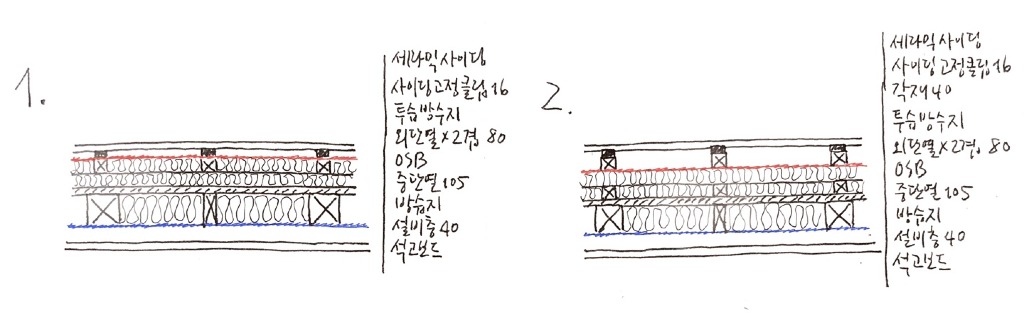 1.
세라믹사이딩
사이딩고정클립16
투습방수지
외단열×2겹 80
OSB
중단열105
방습지
설비층40
석고보드
2.
세라믹사이딩
사이딩고정클립16
각재40
투습방수지
외단열×2겹. 80
OSB
중단열105
방습지
설비층40
석고보드